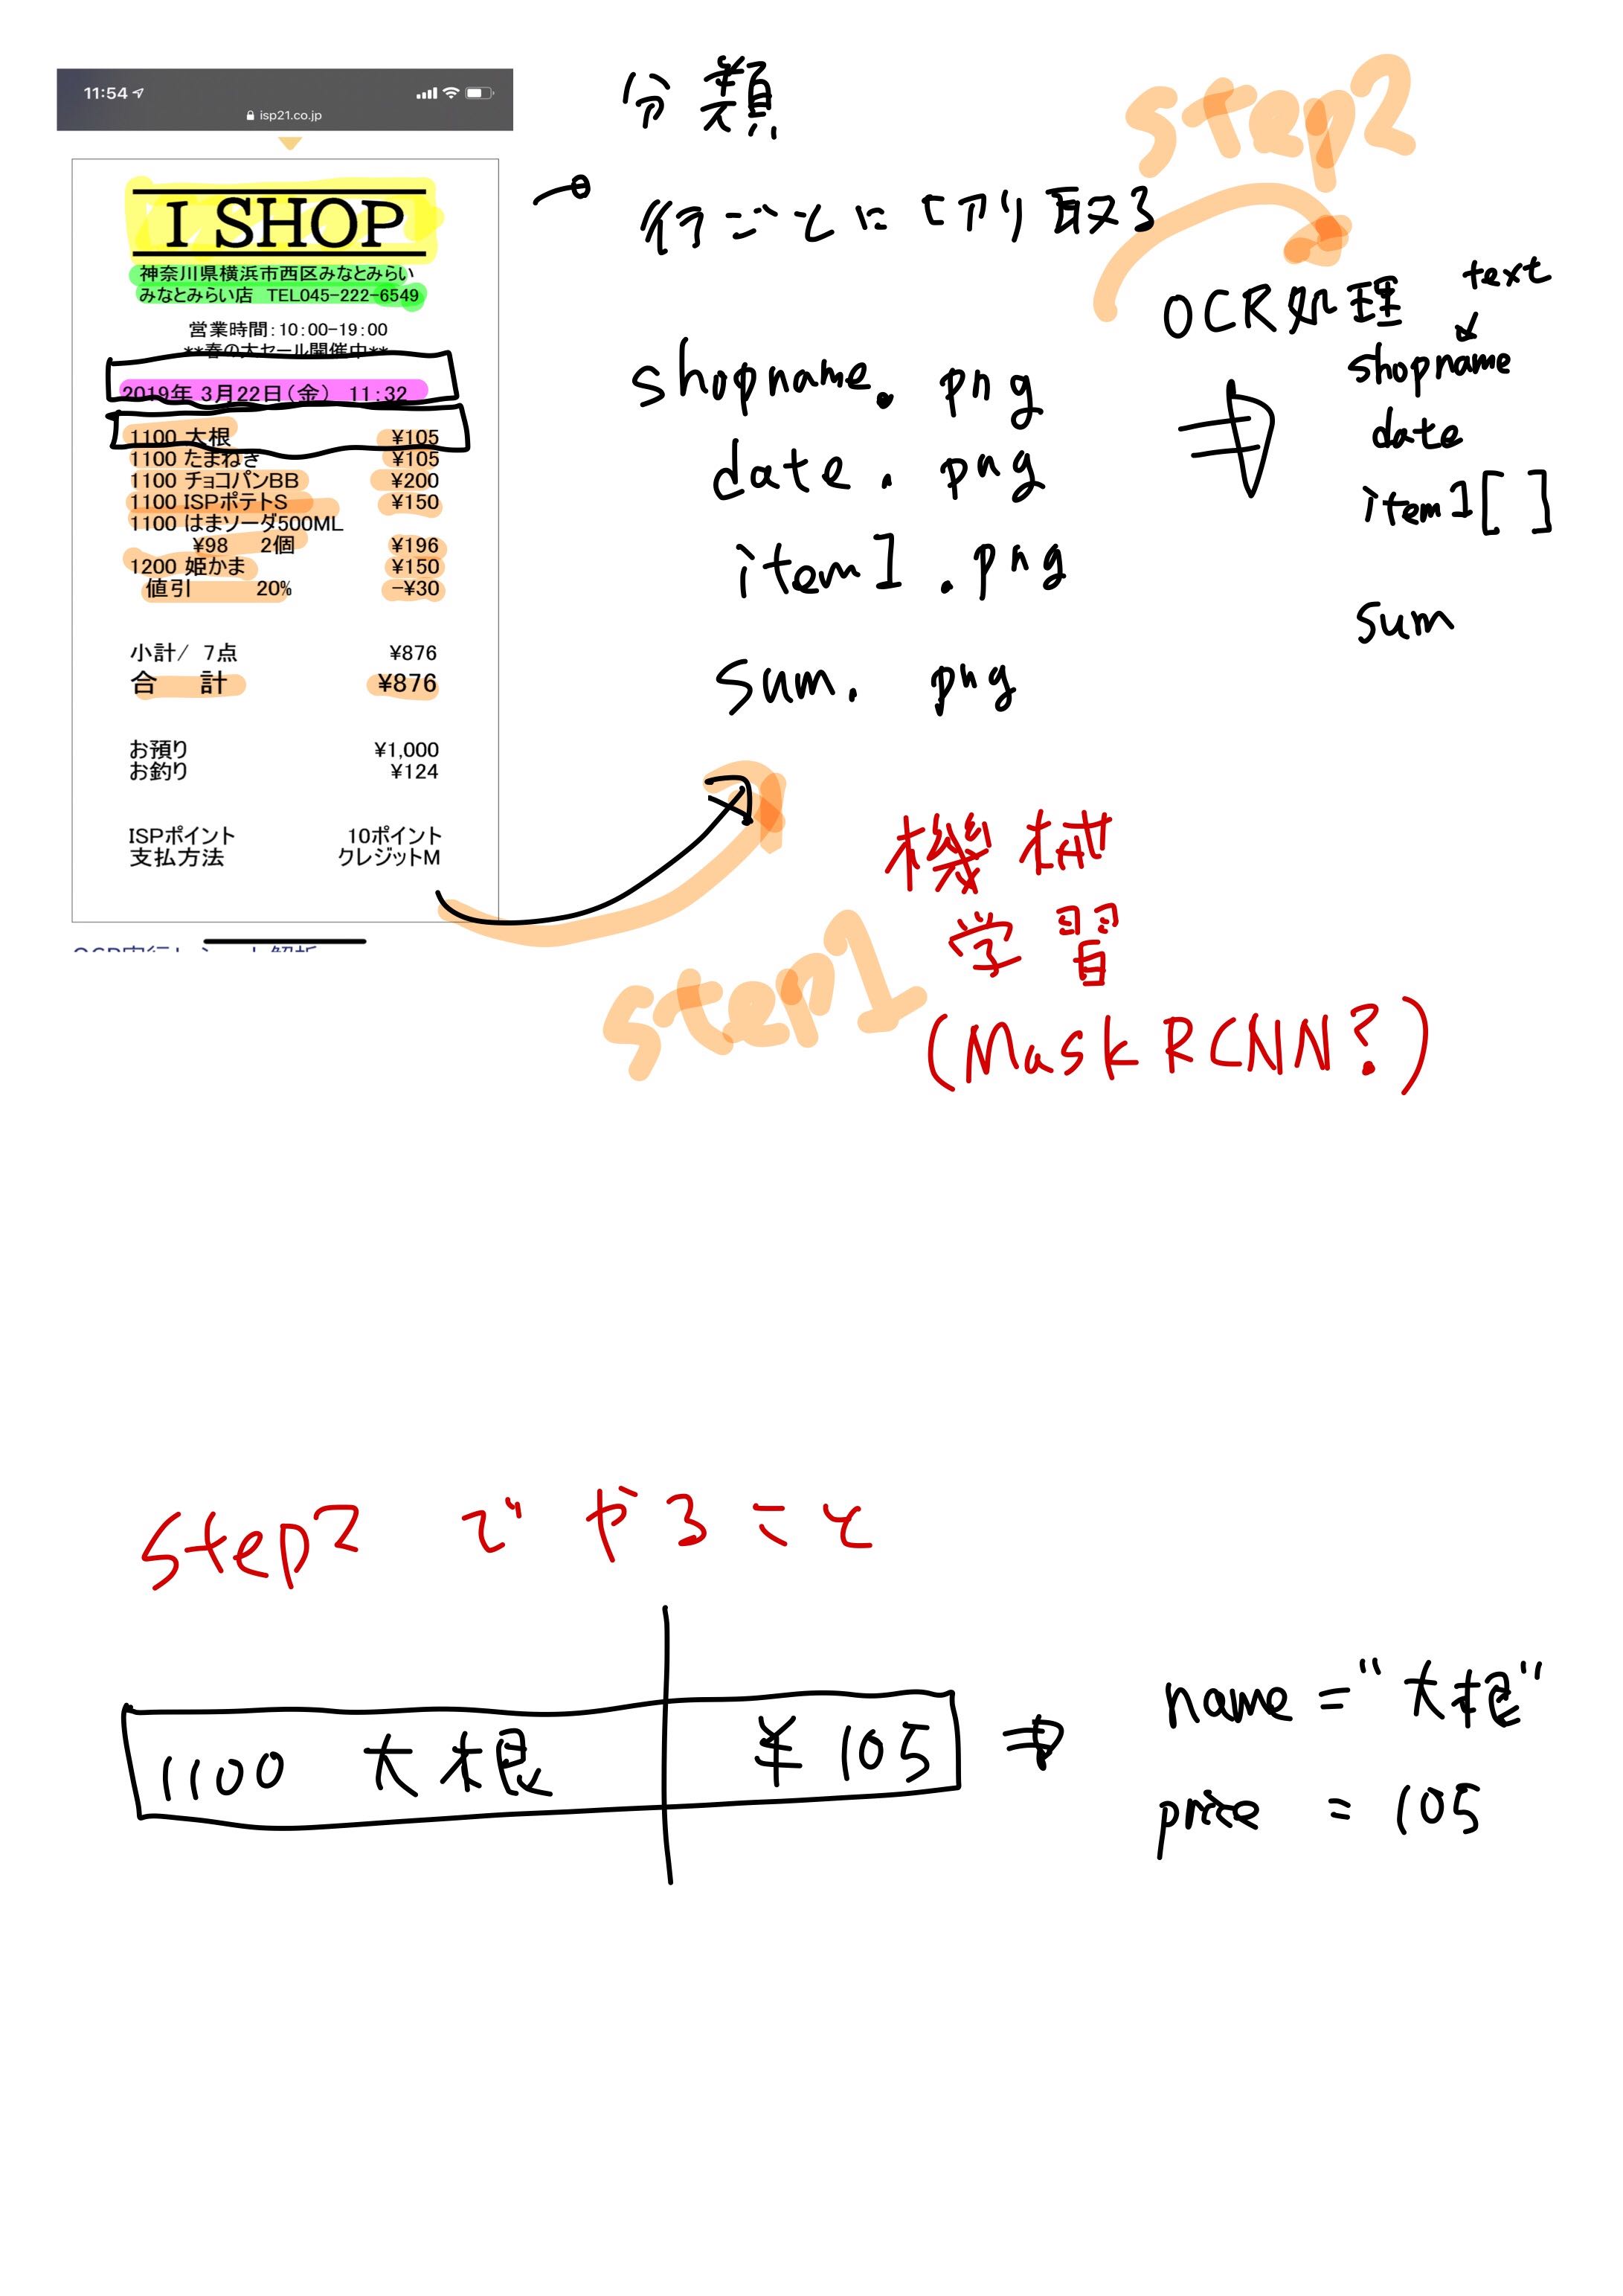 11:54
isp21.co.jp
I SHOP
神奈川県横浜市西区みなとみらい
みなとみらい店 TEL045-222-6549
営業時間:10:00-19:00
**春の大セール開催中**
2019年 3月22日(金) 11:32
1100 大根 ¥105
1100 たまねぎ ¥105
1100 チョコパンBB ¥200
1100 ISPポテトS ¥150
1100 はまソーダ500ML
¥98 2個 ¥196
1200 姫かま ¥150
値引 20% -¥30
小計/ 7点 ¥876
合 計 ¥876
お預り ¥1,000
お釣り ¥124
ISPポイント 10ポイント
支払方法 クレジットM
分類
行ごとに切り取る
shopname.png
date.png
item1.png
sum.png
step1
機械
学習
(Mask RCNN?)
step2
OCR処理
text
shopname
date
item1[ ]
sum
step2 でやること
1100 大根 ¥105
name = "大根"
price = 105